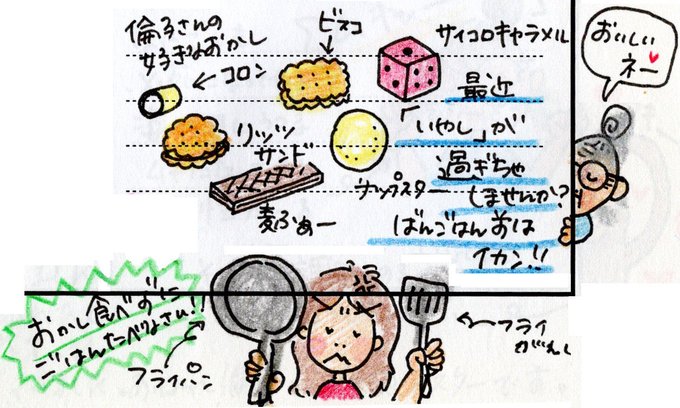 倫子さんの
好きなおかし
コロン
ビスコ
サイコロキャラメル
リッツ
サンド
麦ふぁー
チップスター
最近
「いやし」が
過ぎちゃ
しませんか?
ばんごはん前は
イカン!!
おいしい
ネー
おかし食べずに
ごはんたべりょさい!!
フライパン
フライ
がえし